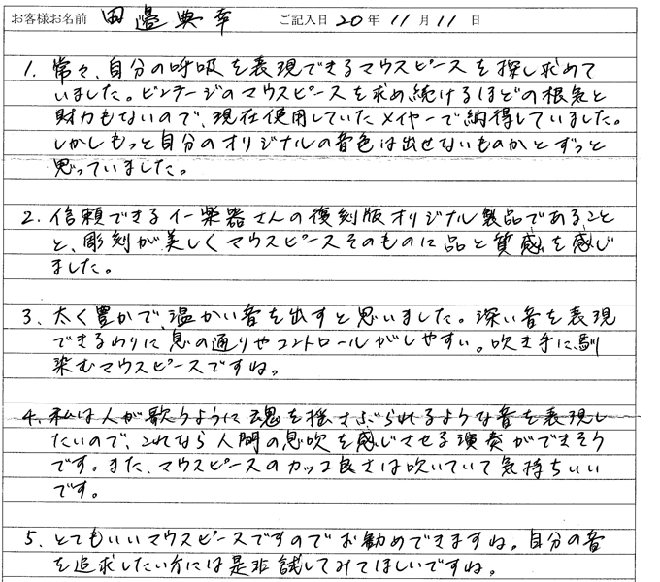 お客様お名前 田邉典幸 ご記入日 20年 11月 11日
1. 常々、自分の呼吸を表現できるマウスピースを探し求めて
いました。ビンテージのマウスピースを求め続けるほどの根気と
財力もないので、現在使用していたメイヤーで納得していました。
しかしもっと自分のオリジナルの音色は出せないものかとずっと
思っていました。
2. 信頼できるイー楽器さんの復刻版オリジナル製品であること
と、彫刻が美しくマウスピースそのものに品と質感を感じ
ました。
3. 太く豊かで、温かい音を出すと思いました。深い音を表現
できるわりに息の通りやコントロールがしやすい。吹き手に馴
染むマウスピースですね。
4. 私は人が歌うように魂を揺さぶられるような音を表現し
たいので、これなら人間の息吹を感じさせる演奏ができそう
です。また、マウスピースのカッコ良さは吹いていて気持ちいい
です。
5. とてもいいマウスピースですのでお勧めできますね。自分の音
を追求したい方には是非試してみてほしいですね。